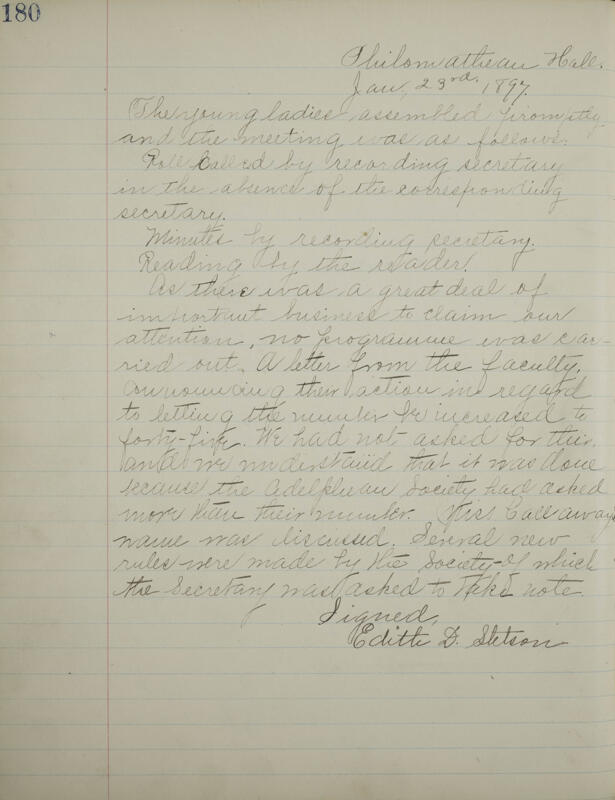 180
Philomathean Hall.
Jan. 23rd. 1897.
The young ladies assembled promptly
and the meeting was as follows:
Roll Called by recording secretary
in the absence of the corresponding
secretary.
Minutes by recording secretary.
Reading by the reader.
As there was a great deal of
important business to claim our
attention, no programme was car-
ried out. A letter from the faculty,
announcing their action in regard
to letting the number be increased to
forty-five. We had not asked for this,
and we understand that it was done
because the Adelphean Society had asked
more than their number. Miss Callaway's
name was discussed. Several new
rules were made by the Society of which
the Secretary was asked to take note.
Signed,
Edith D. Stetson